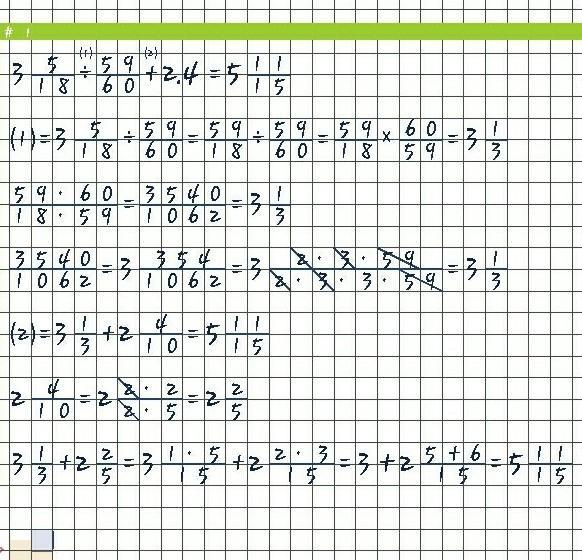 # 1
3 5/18 ÷ 59/60 + 2.4 = 5 11/15
(1) (2)
(1) = 3 5/18 ÷ 59/60 = 59/18 ÷ 59/60 = 59/18 × 60/59 = 3 1/3
59 · 60/18 · 59 = 3540/1062 = 3 1/3
3540/1062 = 3 354/1062 = 3 2 · 3 · 59/2 · 3 · 3 · 59 = 3 1/3
(2) = 3 1/3 + 2 4/10 = 5 11/15
2 4/10 = 2 2 · 2/2 · 5 = 2 2/5
3 1/3 + 2 2/5 = 3 1 · 5/15 + 2 2 · 3/15 = 3 + 2 5+6/15 = 5 11/15